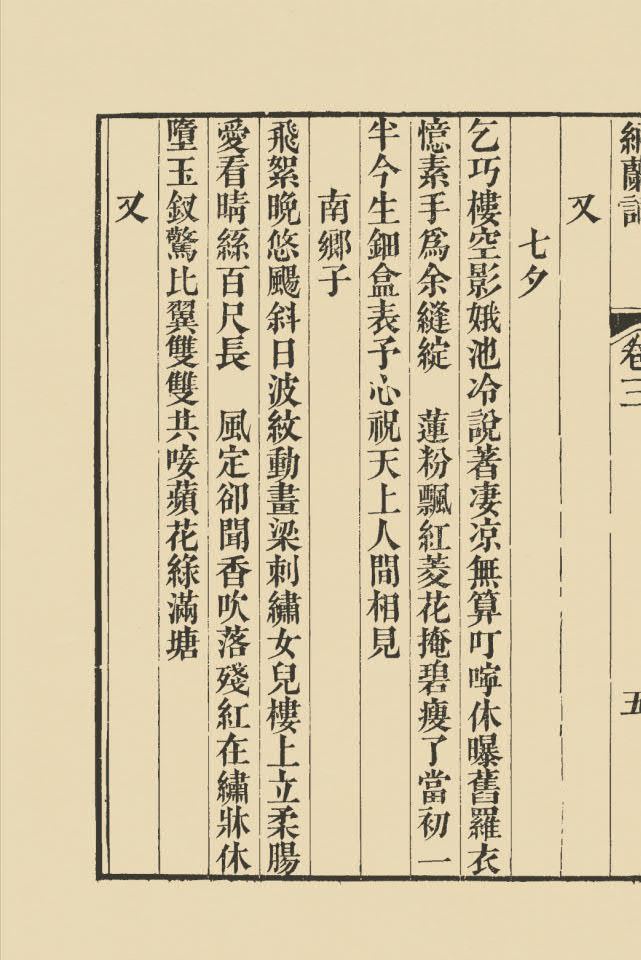 卷三
五
又
七夕
乞巧樓空影娥池冷說著凄凉無算叮嚀休曝舊羅衣
憶素手爲余縫綻　蓮粉飄紅菱花掩碧瘦了當初一
半今生鈿盒表予心祝天上人間相見
南鄉子
飛絮晚悠颺斜日波紋動畫梁刺繡女兒樓上立柔腸
愛看晴絲百尺長　風定卻聞香吹落殘紅在繡牀休
墮玉釵驚比翼雙雙共唼蘋花綠滿塘
又